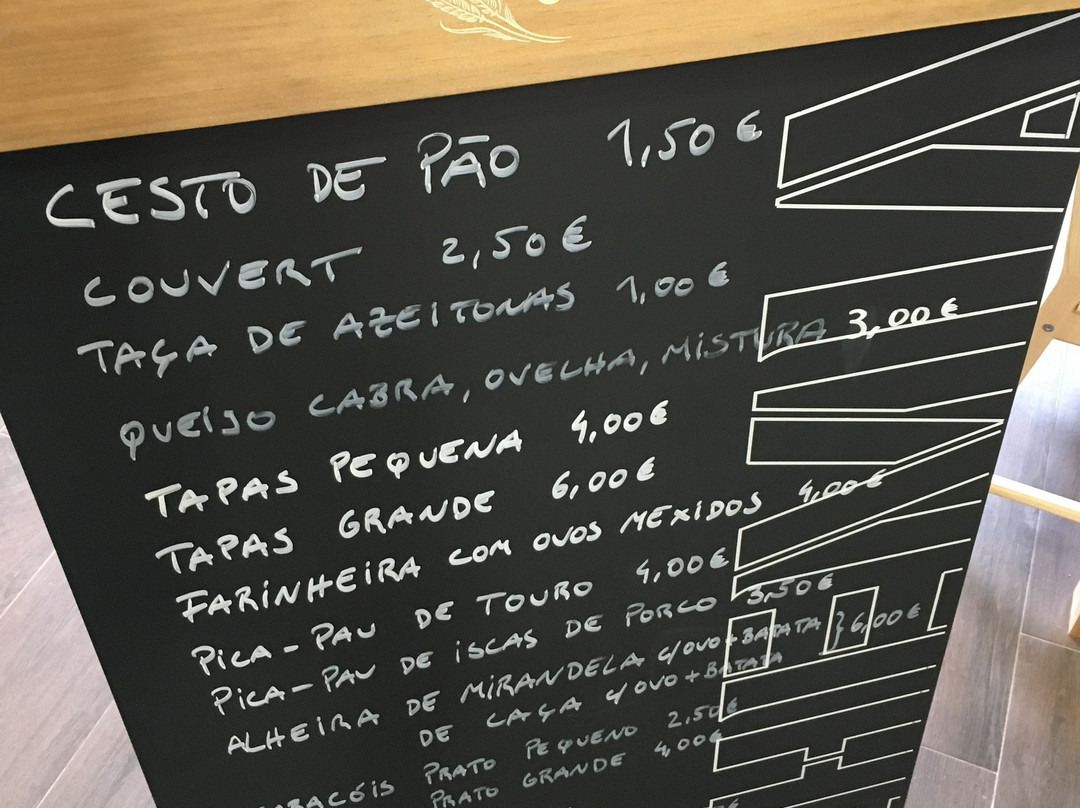 CESTO DE PÃO 1,50 €
COUVERT 2,50 €
TAÇA DE AZEITONAS 1,00 €
QUEIJO CABRA, OVELHA, MISTURA 3,00 €
TAPAS PEQUENA 4,00 €
TAPAS GRANDE 6,00 €
FARINHEIRA COM OVOS MEXIDOS 4,00 €
PICA-PAU DE TOURO 4,00 €
PICA-PAU DE ISCAS DE PORCO 3,50 €
ALHEIRA DE MIRANDELA C/OVO+BATATA } 6,00 €
DE CAÇA C/OVO+BATATA
PRATO PEQUENO 2,50 €
PRATO GRANDE 4,00 €